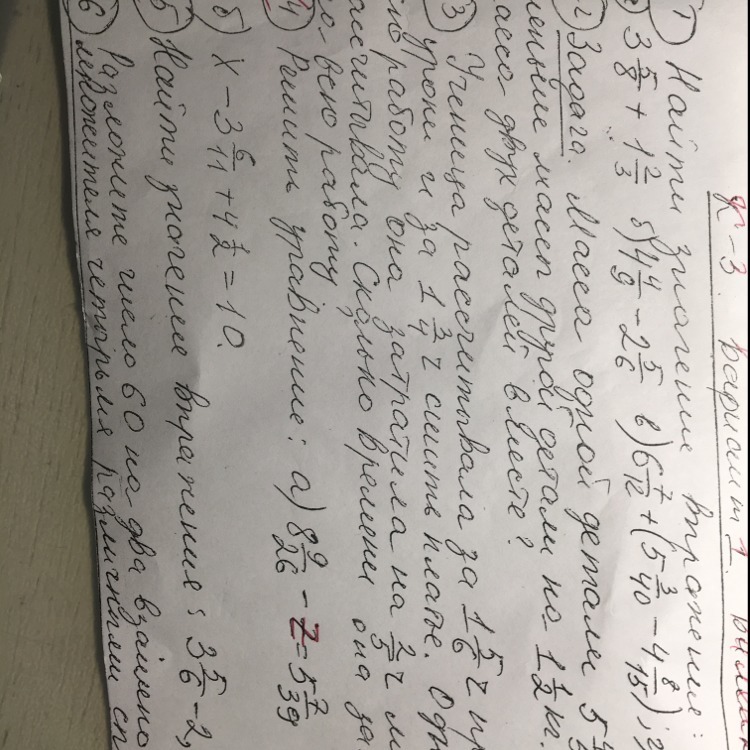 К-3. Вариант 1.
1) Найти значение выражения:
3 5/8 + 1 2/3 б) 4 4/9 - 2 5/6 в) 6 7/12 + (5 3/40 - 4 8/15);
2) Задача. Масса одной детали 5
меньше массы другой детали на 1 1/2 кг.
масса двух деталей вместе?
3) Ученица рассчитывала за 1 5/6 ч
уроки и за 1 3/4 ч сшить платье.
работу она затратила на 2/5 ч
рассчитывала. Сколько времени она
всю работу
4) Решить уравнение: а) 8 9/26 - z = 5 7/39
б) x - 3 6/11 + 4 1/2 = 10.
5 Найти значение выражения: 3 5/6 - 2,
6) Разложите число 60 на два взаимно
множителя четырьмя различными сп